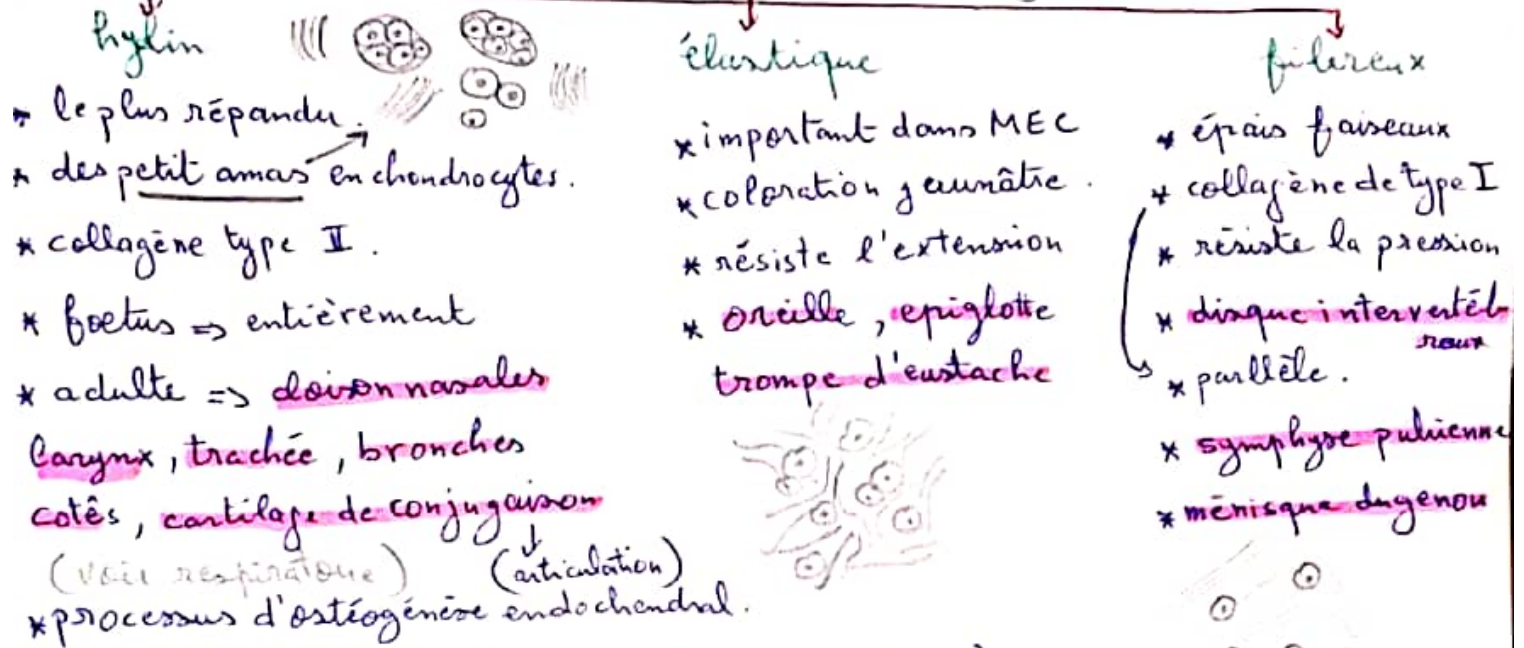 hylin
* le plus répandu.
* des petit amas en chondrocytes.
* collagène type II.
* foetus => entièrement
* adulte => cloison nasales
larynx, trachée, bronches
cotês, cartilage de conjugaison
(voir respiratoire)
(articulation)
* processus d'ostéogénèse endochondral.
élastique
* important dans MEC
* coloration jaunâtre.
* résiste l'extension
* oreille, epiglotte
trompe d'eustache
fibreux
* épais faiseaux
* collagène de type I
* résiste la pression
* disque intervertéb
raux
* parllèle.
* symphyse pubienne
* ménisque du genou